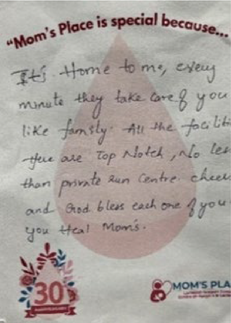 "Mom's Place is special because...
It's Home to me, every
minute they take care of you
like family. All the facilit
Here are Top Notch, No les
than private Run Centre. cheer
and God bless each one of you
you Heal Mom's.
30
MOM'S PLA